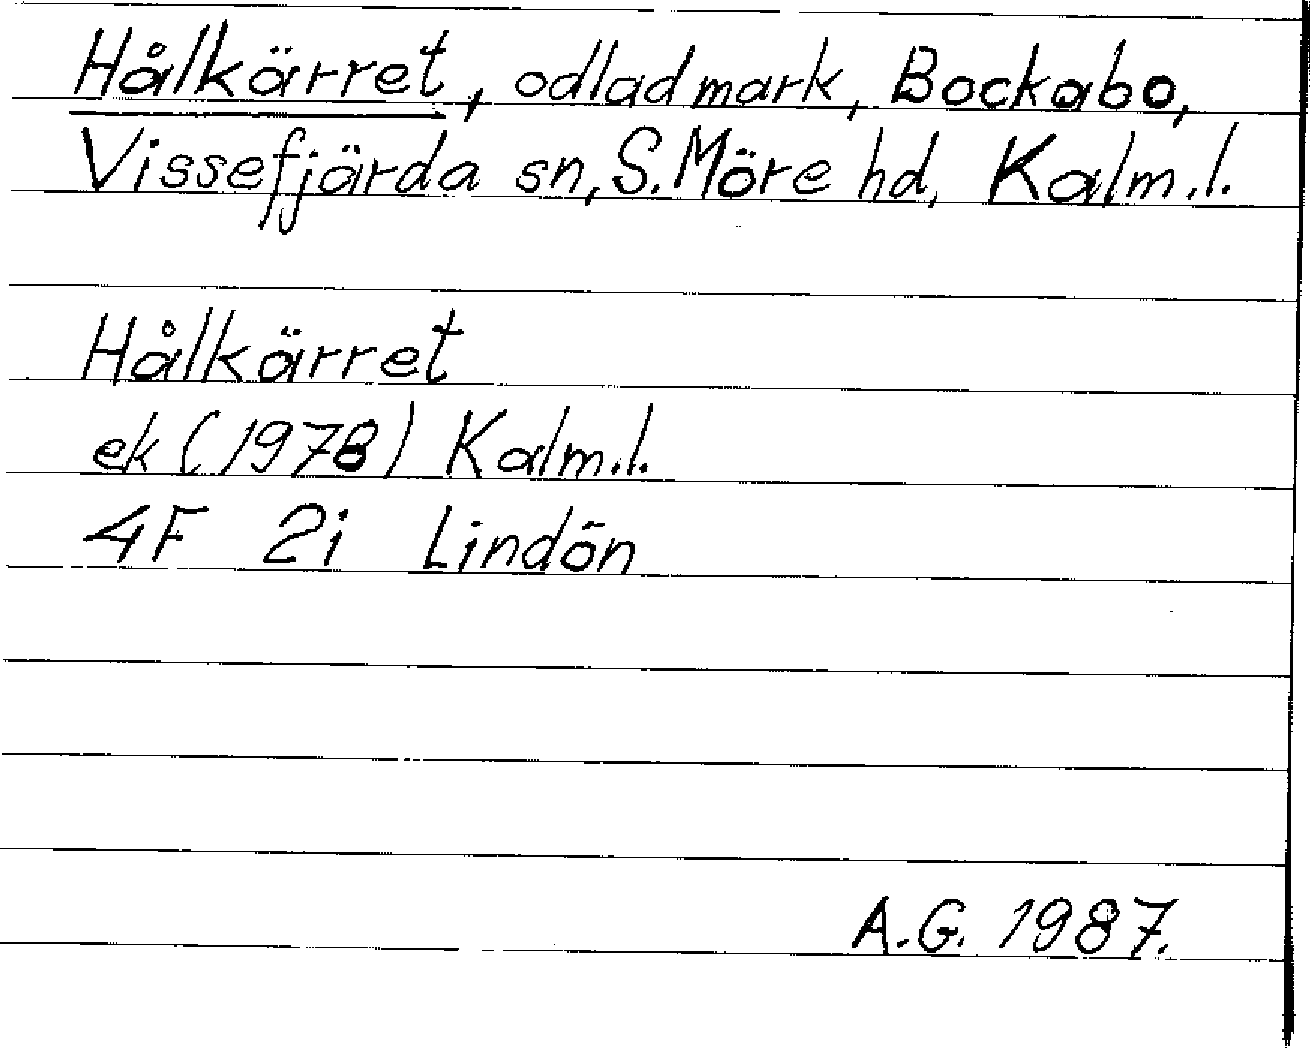 Hålkärret, odlad mark, Bockabo,
Vissefjärda sn, S. Möre hd, Kalm. l.
Hålkärret
ek (1978) Kalm. l.
4F 2i Lindön
A.G. 1987.